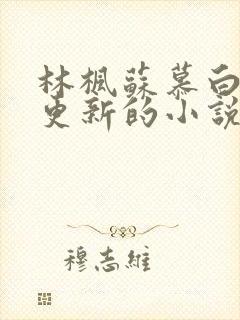 林楓蘇慕白
更新的小說
穆志維